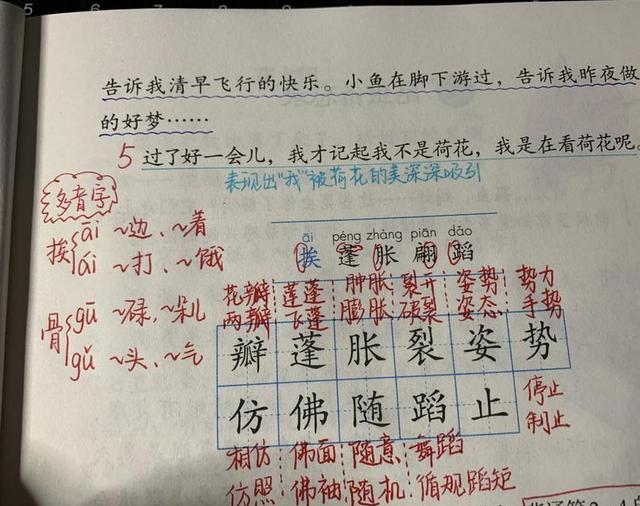 告诉我清早飞行的快乐。小鱼在脚下游过，告诉我昨夜做
的好梦……
5 过了好一会儿，我才记起我不是荷花，我是在看荷花呢。
表现出"我"被荷花的美深深吸引
多音字
挨 āi ~边、~着
ái ~打、~饿
骨 gū ~碌、~朵儿
gǔ ~头、~气
āi péng zhàng piān dǎo
挨 蓬 胀 翩 蹈
花瓣 莲蓬 肿胀 裂开 姿势 势力
两瓣 飞蓬 膨胀 破裂 姿态 手势
瓣 蓬 胀 裂 姿 势
仿 佛 随 蹈 止
停止
制止
相仿 佛面 随意 舞蹈
仿照 佛袖 随机 循规蹈矩